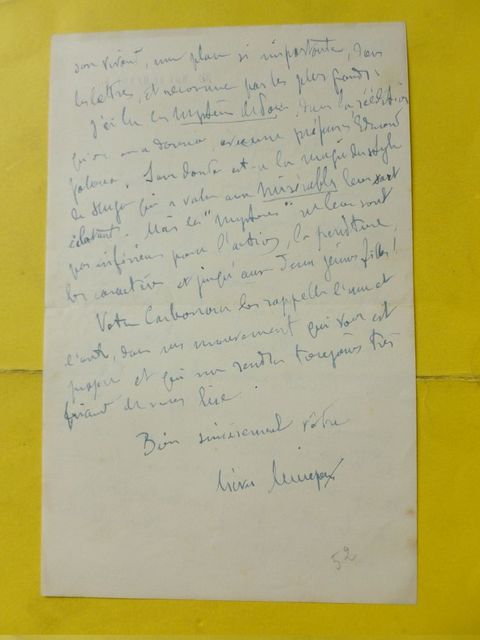 son vivant, une place si importante, dans
les lettres, et reconnue par les plus grands.
J'ai lu les Mystères de Paris, dans la réédition
qu'on en a donnée, avec une préface d'Edmond
. Sans doute est-ce la magie du style
de Hugo qui a valu aux Misérables leur sort
éclatant. Mais les "Mystères" ne leur sont
pas inférieurs pour l'action, la peinture,
les caractères et jusqu'aux jeunes filles!
Votre les rappelle l'une et
l'autre, dans un mouvement qui vous est
propre et qui me rendra toujours très
friand de vous lire.
Bien sincèrement vôtre
52